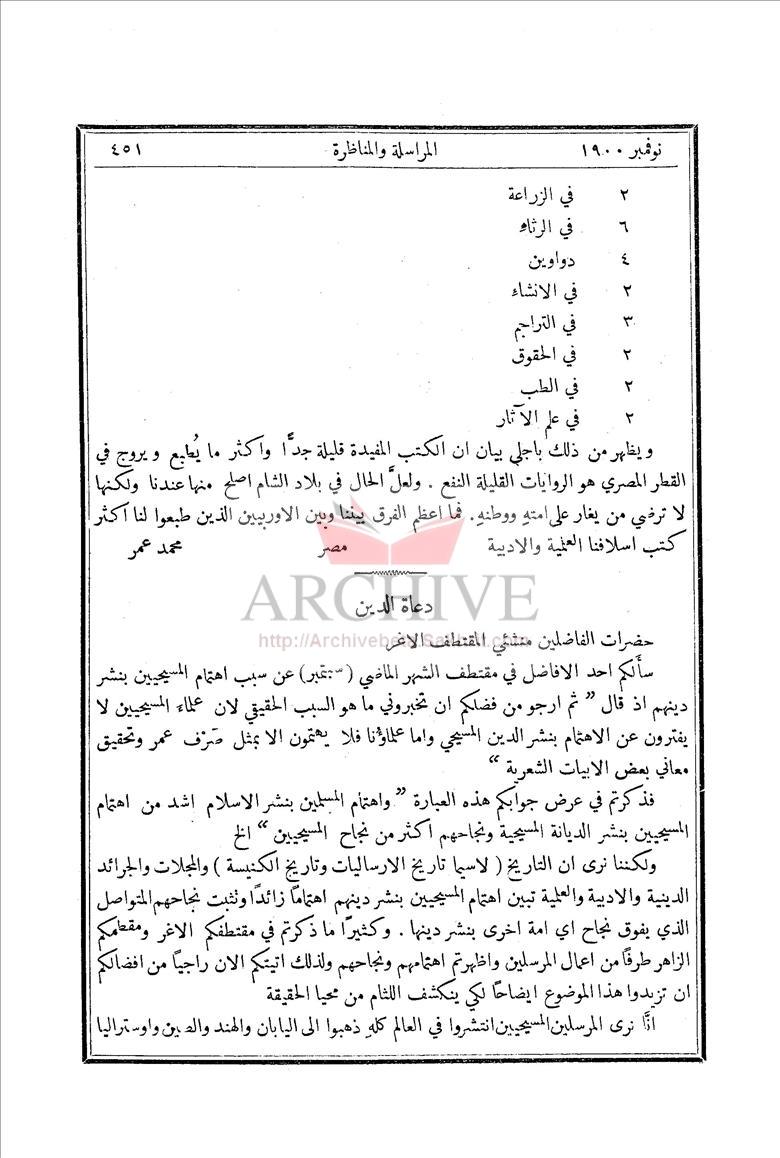 نوفمبر ١٩٠٠ المراسلة والمناظرة ٤٥١
٢ في الزراعة
٦ في الرثاء
٤ دواوين
٢ في الانشاء
٣ في التراجم
٢ في الحقوق
٢ في الطب
٢ في علم الآثار
ويظهر من ذلك باجلى بيان ان الكتب المفيدة قليلة جدًّا واكثر ما يُطبع ويروج في
القطر المصري هو الروايات القليلة النفع . ولعلَّ الحال في بلاد الشام اصلح منها عندنا ولكنها
لا ترضي من يغار على امتهِ ووطنهِ. فما اعظم الفرق بيننا وبين الاوربيين الذين طبعوا لنا اكثر
كتب اسلافنا العلمية والادبية مصر محمد عمر
ARCHIVE
دعاة الدين
http://Archivebeta.Sakhrit.com
حضرات الفاضلين منشئي المقتطف الاغر
سألكم احد الافاضل في مقتطف الشهر الماضي (سبتمبر) عن سبب اهتمام المسيحيين بنشر
دينهم اذ قال " ثم ارجو من فضلكم ان تخبروني ما هو السبب الحقيقي لان علماء المسيحيين لا
يفترون عن الاهتمام بنشر الدين المسيحي واما علماؤنا فلا يهتمون الا بمثل صَرْف عمر وتحقيق
معاني بعض الابيات الشعرية "
فذكرتم في عرض جوابكم هذه العبارة " واهتمام المسلمين بنشر الاسلام اشد من اهتمام
المسيحيين بنشر الديانة المسيحية ونجاحهم اكثر من نجاح المسيحيين " الخ
ولكننا نرى ان التاريخ ( لاسيما تاريخ الارساليات وتاريخ الكنيسة ) والمجلات والجرائد
الدينية والادبية والعلمية تبين اهتمام المسيحيين بنشر دينهم اهتمامًا زائدًا وتثبت نجاحهم المتواصل
الذي يفوق نجاح اي امة اخرى بنشر دينها . وكثيرًا ما ذكرتم في مقتطفكم الاغر ومقطمكم
الزاهر طرفًا من اعمال المرسلين واظهرتم اهتمامهم ونجاحهم ولذلك اتيتكم الان راجيًا من افضالكم
ان تزيدوا هذا الموضوع ايضاحًا لكي ينكشف اللثام من محيا الحقيقة
انَّا نرى المرسلين المسيحيين انتشروا في العالم كلهِ ذهبوا الى اليابان والهند والصين واوستراليا